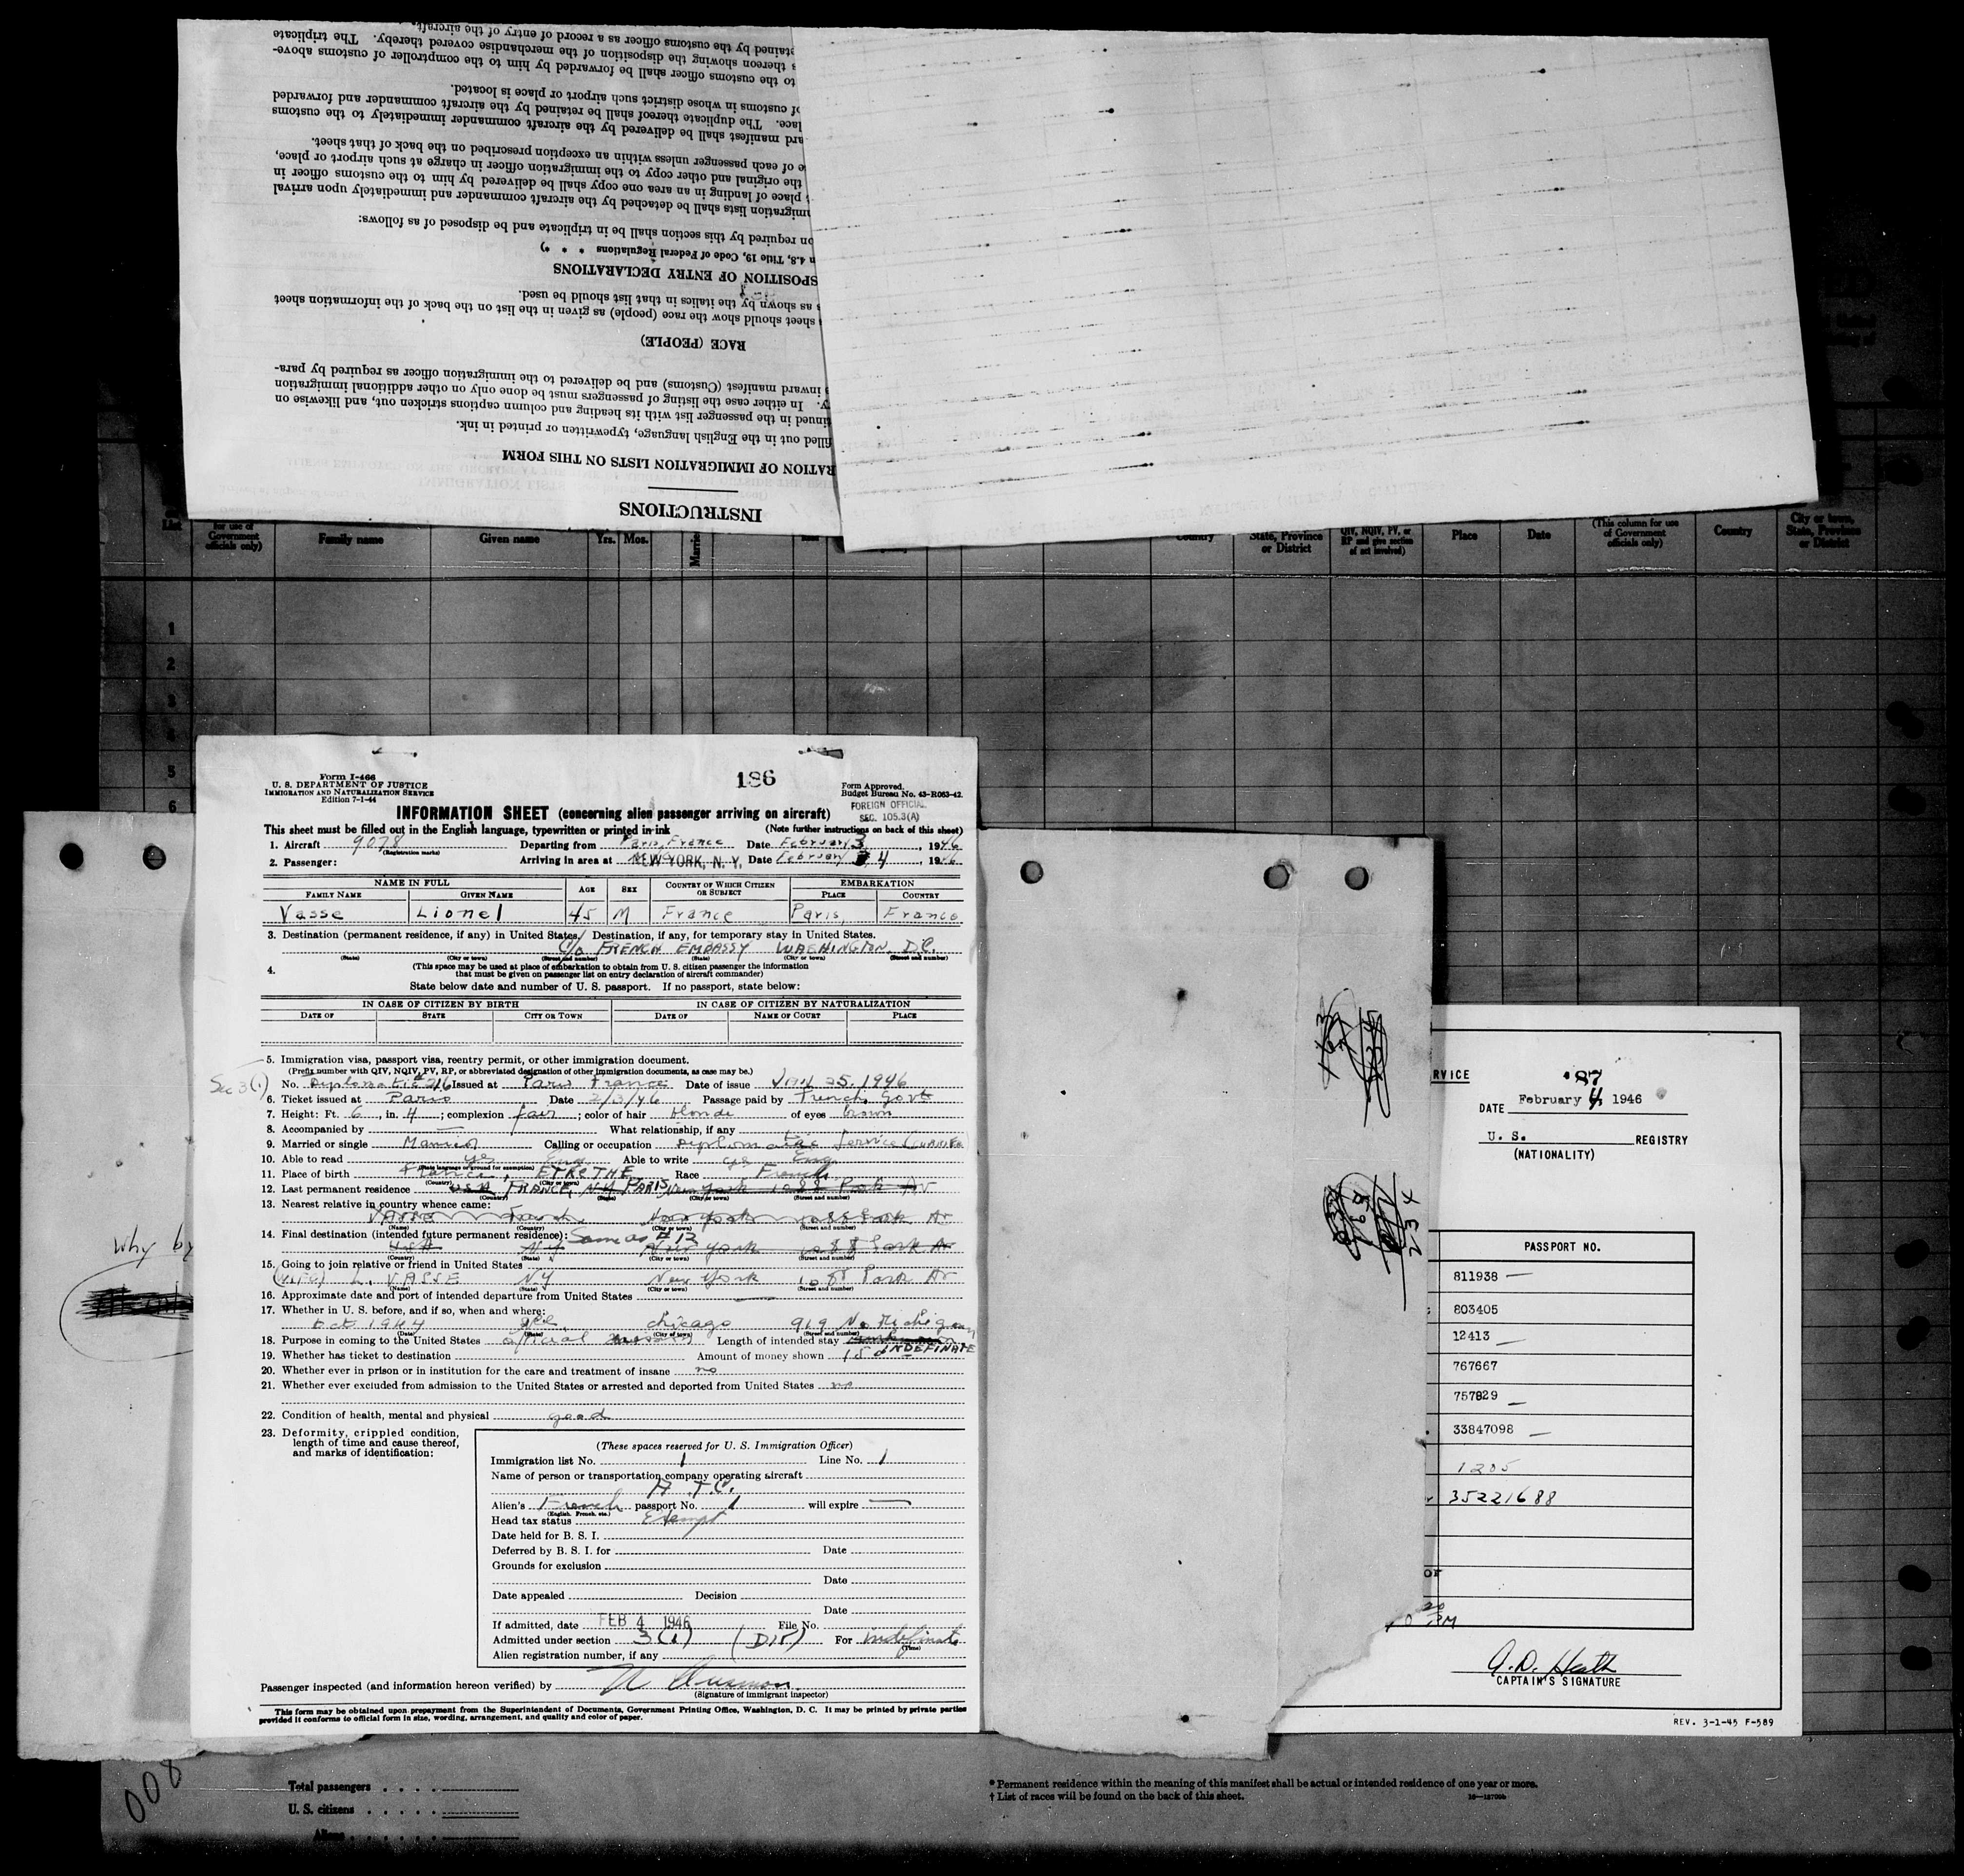 tained by the customs officer as a record of entry of the aircraft.
s thereon showing the disposition of the merchandise covered thereby. The triplicate
to the customs officer shall be forwarded by him to the comptroller of customs above-
of customs in whose district such airport or place is located.
lace. The duplicate thereof shall be retained by the aircraft commander and forwarded
ard manifest shall be delivered by the aircraft commander immediately to the customs
e of each passenger unless within an exception prescribed on the back of that sheet.
the original and other copy to the immigration officer in charge at such airport or place,
t place of landing in an area one copy shall be delivered by him to the customs officer in
migration lists shall be detached by the aircraft commander and immediately upon arrival
on required by this section shall be in triplicate and be disposed of as follows:
n 4.8, Title 19, Code of Federal Regulations * * *)
SPOSITION OF ENTRY DECLARATIONS
s as shown by the italics in that list should be used.
sheet should show the race (people) as given in the list on the back of the information sheet
RACE (PEOPLE)
s inward manifest (Customs) and be delivered to the immigration officer as required by para-
y. In either case the listing of passengers must be done only on other additional immigration
tinued in the passenger list with its heading and column captions stricken out, and likewise on
filled out in the English language, typewritten or printed in ink.
RATION OF IMMIGRATION LISTS ON THIS FORM
INSTRUCTIONS
List
for use of Government officials only)
Family name
Given name
Yrs. Mos.
Country
State, Province or District
QIV, NQIV, PV, or RP and give section of act involved)
Place
Date
(This column for use of Government officials only)
Country
City or town, State, Province or District
1
2
3
4
5
6
Form I-466
U. S. DEPARTMENT OF JUSTICE
IMMIGRATION AND NATURALIZATION SERVICE
Edition 7-1-44
186
Form Approved.
Budget Bureau No. 43-R063-42.
FOREIGN OFFICIAL
SEC. 105.3(A)
INFORMATION SHEET (concerning alien passenger arriving on aircraft)
This sheet must be filled out in the English language, typewritten or printed in ink (Note further instructions on back of this sheet)
1. Aircraft 9078 (Registration marks) Departing from Paris, France Date February 3, 1946
2. Passenger: Arriving in area at NEW YORK, N. Y. Date February 4, 1946
NAME IN FULL AGE SEX COUNTRY OF WHICH CITIZEN OR SUBJECT EMBARKATION
FAMILY NAME GIVEN NAME PLACE COUNTRY
Vasse Lionel 45 M France Paris, France
3. Destination (permanent residence, if any) in United States. Destination, if any, for temporary stay in United States.
C/o FRENCH EMBASSY WASHINGTON D.C.
(State) (City or town) (Street and number) (State) (City or town) (Street and number)
4. (This space may be used at place of embarkation to obtain from U. S. citizen passenger the information that must be given on passenger list on entry declaration of aircraft commander)
State below date and number of U. S. passport. If no passport, state below:
IN CASE OF CITIZEN BY BIRTH IN CASE OF CITIZEN BY NATURALIZATION
DATE OF STATE CITY OR TOWN DATE OF NAME OF COURT PLACE
5. Immigration visa, passport visa, reentry permit, or other immigration document.
(Prefix number with QIV, NQIV, PV, RP, or abbreviated designation of other immigration documents, as case may be.)
Sec 3(1) No. Diplomatic #216 Issued at Paris France Date of issue Jan 25, 1946
6. Ticket issued at Paris Date 2/3/46 Passage paid by French Govt
7. Height: Ft. 6, in. 4; complexion fair; color of hair blonde of eyes brown
8. Accompanied by — What relationship, if any
9. Married or single Married Calling or occupation diplomatic service
10. Able to read yes Eng Able to write yes Eng
(State language or ground for exemption)
11. Place of birth France, Race French
(Country) (City or town)
12. Last permanent residence USA FRANCE, NY PARIS, New York 1088 Park Av
(Country) (State) (City or town) (Street and number)
13. Nearest relative in country whence came:
VASSE New York 1088 Park Av
(Name) (Country) (City or town) (Street and number)
14. Final destination (intended future permanent residence): Same as #12
USA NY New York 1088 Park Av
(Country) (State) (City or town) (Street and number)
15. Going to join relative or friend in United States
(WIFE) L. VASSE NY New York 1088 Park Av
(Name) (State) (City or town) (Street and number)
16. Approximate date and port of intended departure from United States —
17. Whether in U. S. before, and if so, when and where:
Oct 1944 Ill. Chicago 919 No Michigan
(Date) (State) (City or town) (Street and number)
18. Purpose in coming to the United States official mission Length of intended stay INDEFINATE
19. Whether has ticket to destination Amount of money shown 150
20. Whether ever in prison or in institution for the care and treatment of insane no
21. Whether ever excluded from admission to the United States or arrested and deported from United States no
22. Condition of health, mental and physical good
23. Deformity, crippled condition, length of time and cause thereof, and marks of identification:
(These spaces reserved for U. S. Immigration Officer)
Immigration list No. 1 Line No. 1
Name of person or transportation company operating aircraft
A.T.C.
Alien's French passport No. 1 will expire —
(English, French, etc.)
Head tax status Exempt
Date held for B. S. I.
Deferred by B. S. I. for Date
Grounds for exclusion
Date
Date appealed Decision
Date
If admitted, date FEB 4 1946 File No.
Admitted under section 3(1) For indefinite
(Time)
Alien registration number, if any
Passenger inspected (and information hereon verified) by
(Signature of immigrant inspector)
This form may be obtained upon prepayment from the Superintendent of Documents, Government Printing Office, Washington, D. C. It may be printed by private parties
provided it conforms to official form in size, wording, arrangement, and quality and color of paper.
why by
RVICE
187
DATE February 4, 1946
U. S. REGISTRY
(NATIONALITY)
PASSPORT NO.
811938 —
803405
12413 —
767667
757829 —
33847098 —
1205
35221688
OF
PM
A. D. Heath
CAPTAIN'S SIGNATURE
REV. 3-1-45 F-589
234
008
Total passengers
U. S. citizens
Aliens
* Permanent residence within the meaning of this manifest shall be actual or intended residence of one year or more.
† List of races will be found on the back of this sheet.